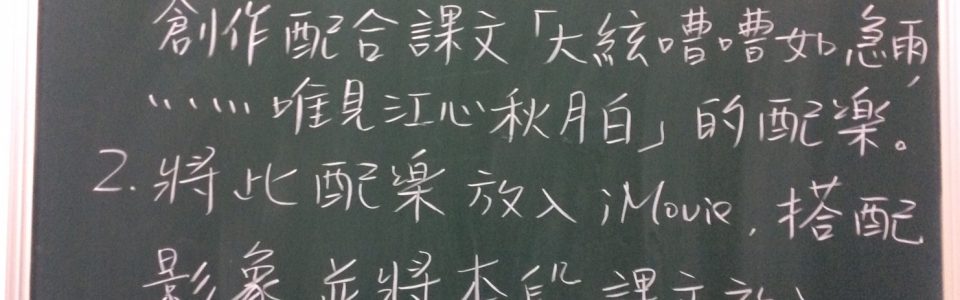 創作配合課文「大絃嘈嘈如急雨,
……唯見江心秋月白」的配樂。
2. 將此配樂放入 iMovie, 搭配
影象並將本段課文放入